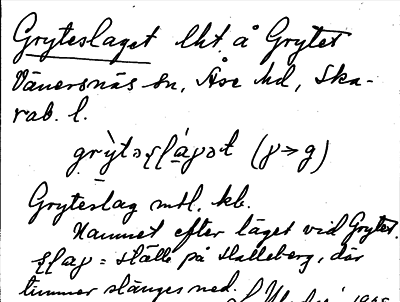 Gryteslaget lht å Grytet
Vänersnäs sn, Åse hd, Ska-
rab. l.
gry̆təʂḷáɣət (ɣ→g)
Gryteslag mtl. kb.
Namnet efter läget vid Grytet.
ʂḷaɣ = ställe på Halleberg, där
timmer slänges ned.